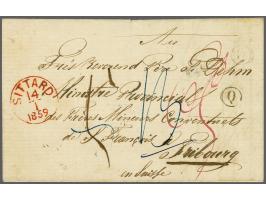 Au
Très Reverend Père J. Dehm
Ministre Provincial
des Frères Mineurs Conventuels
de St François à
Fribourg
en Suisse
SITTARD
14
1859
Q